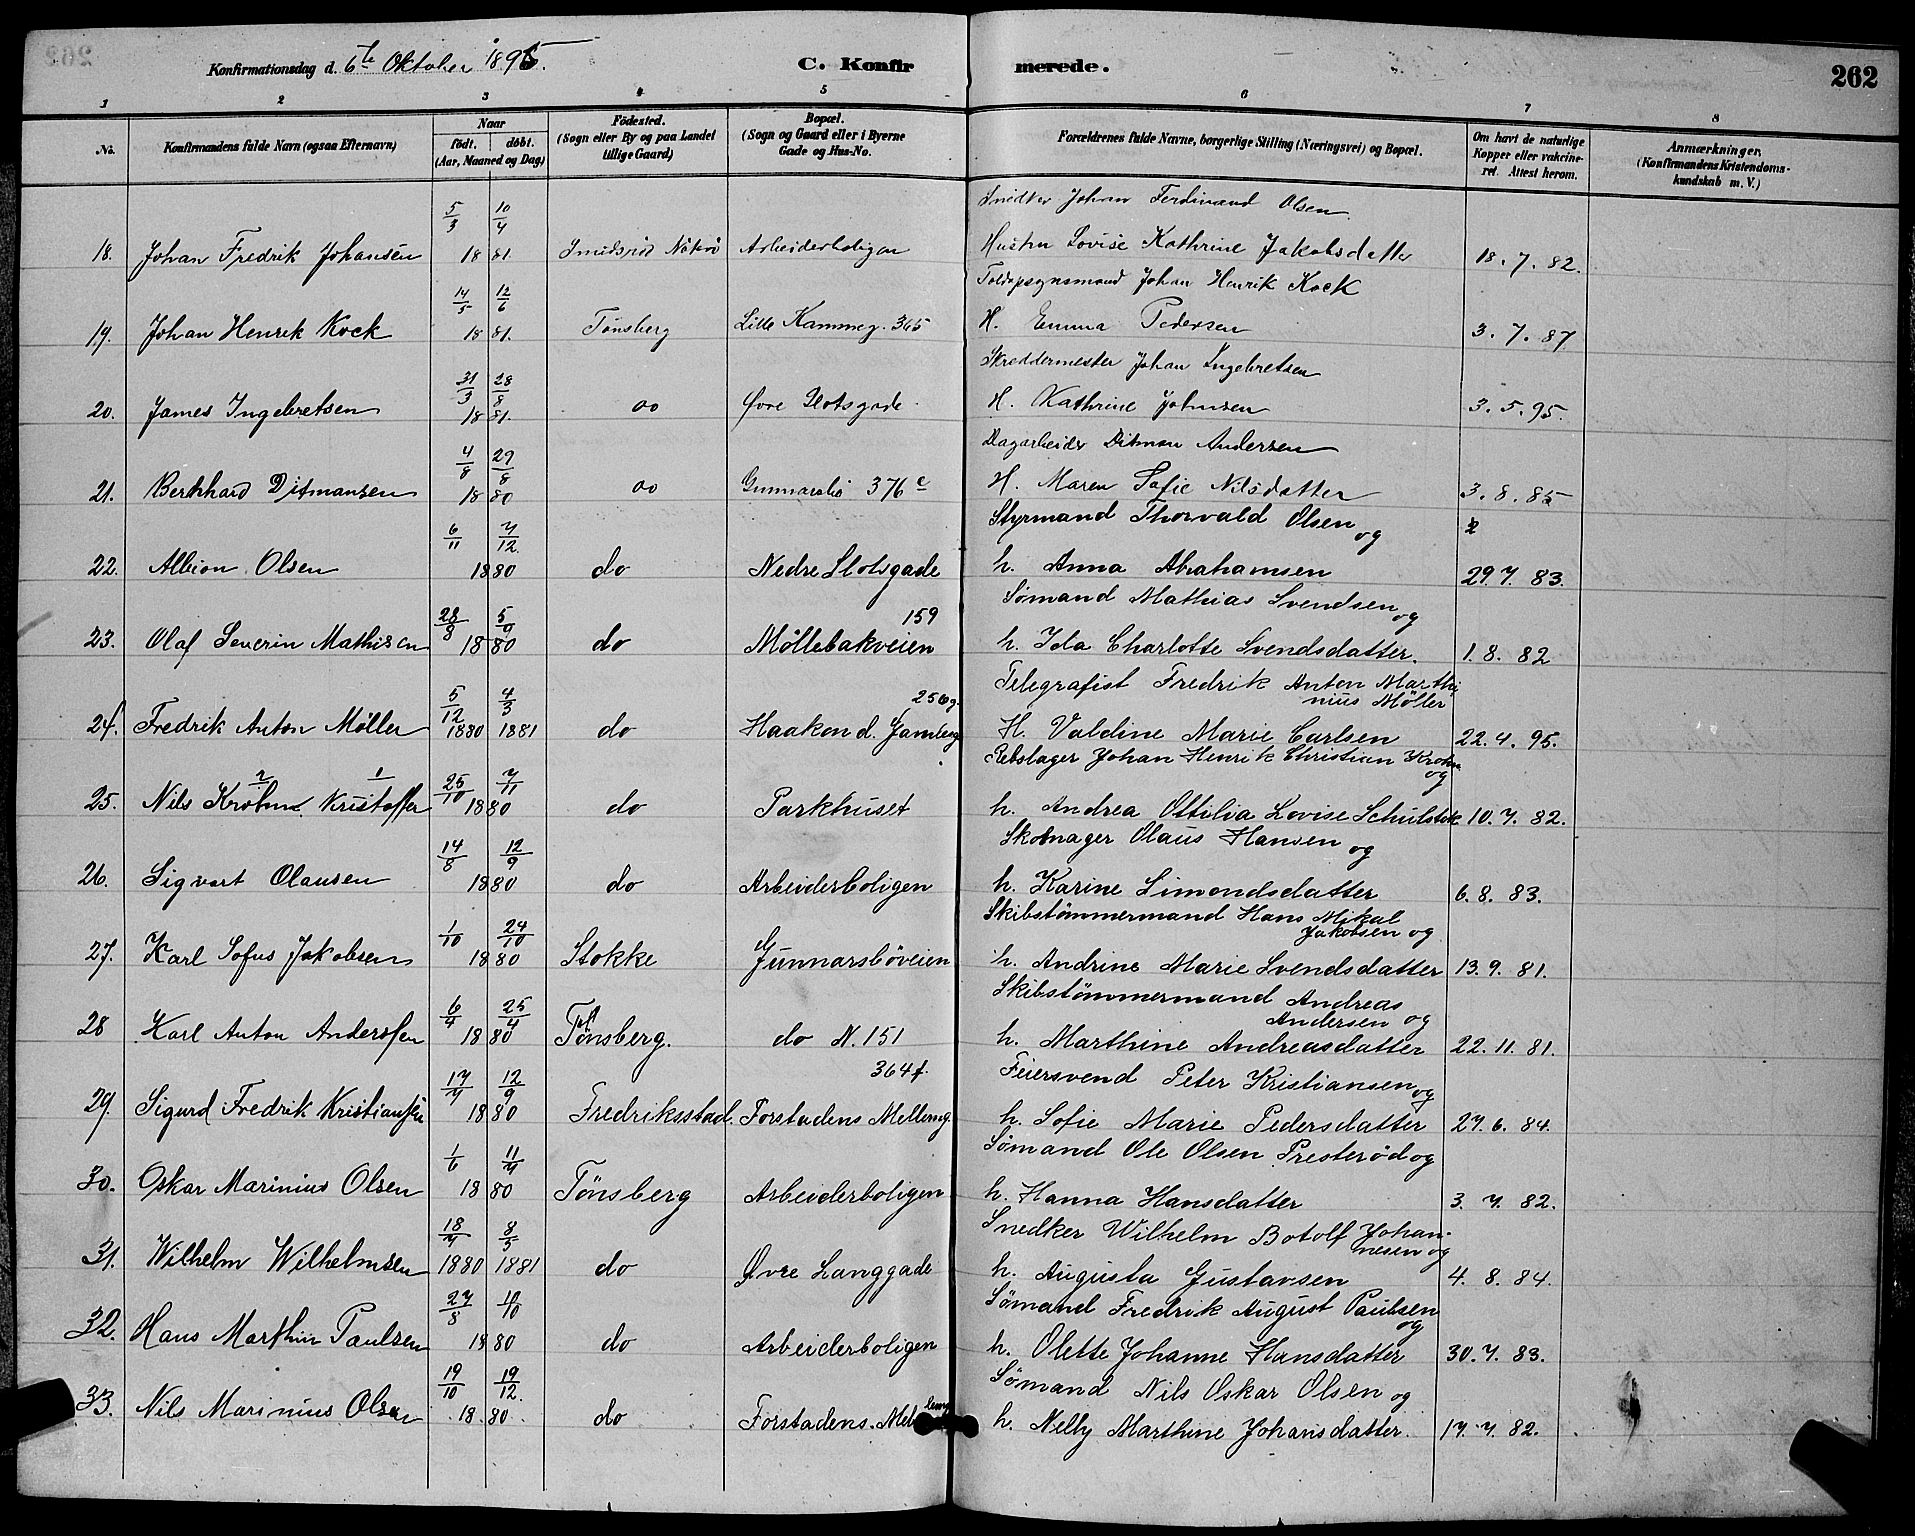 262
Konfirmationsdag d. 6te Oktober 1895. C. Konfirmerede.
1 2 3 4 5 6 7 8
No. Konfirmandens fulde Navn (ogsaa Efternavn) Naar født. døbt. (Aar, Maaned og Dag) Fødested. (Sogn eller By og paa Landet tillige Gaard) Bopæl. (Sogn og Gaard eller i Byerne Gade og Hus-No. Forældrenes fulde Navne, borgerlige Stilling (Næringsvei) og Bopæl. Om havt de naturlige Kopper eller vakcineret. Attest herom. Anmærkninger. (Konfirmandens Kristendomskundskab m. V.)
5/3 10/4 Snedker Johan Ferdinand Olsen
18. Johan Fredrik Johansen 18 81. Nøterø Arbeiderboligen Hustru Lovise Kathrine Jakobsdatter 18. 7. 82.
14/5 12/6 Toldopsynsmand Johan Henrik Kock
19. Johan Henrik Kock 18 81. Tønsberg Lille Kammeg. 365 H. Emma Pedersen 3. 7. 87
31/3 28/8 Skreddermester Johan Ingebretsen
20. James Ingebretsen 18 81. do Øvre Slotsgade H. Kathrine Johnsen 3. 5. 95.
4/8 29/8 Dagarbeider Ditman Andersen
21. Bernhard Ditmansen 18 80 do Gunnarsbø 376 c H. Maren Sofie Nilsdatter 3. 8. 85
6/11 7/12 Styrmand Thorvald Olsen og
22. Albion Olsen 18 80 do Nedre Slotsgade h. Anna Abrahamsen 29. 7. 83.
28/8 5/9 159 Sømand Mathias Svendsen og
23. Olaf Severin Mathisen 18 80 do Møllebakveien h. Ida Charlotte Svendsdatter. 1. 8. 82
5/12 4/3 256 g. Telegrafist Fredrik Anton Marthinius Møller
24. Fredrik Anton Møller 1880 1881 do Haakon d. Gamleg H. Valdine Marie Carlsen 22. 4. 95.
25/10 7/11 Rebslager Johan Henrik Christian Krohn og
25. Nils Krohn Kristoffer 2 1 18 80 do Parkhuset h. Andrea Ottilia Lovise Schulstok 10. 7. 82.
14/8 12/9 Skomager Olaus Hansen og
26. Sigvart Olausen 18 80 do Arbeiderboligen h. Karine Simondsdatter 6. 8. 83.
1/10 24/10 Skibstømmermand Hans Mikal Jakobsen og
27. Karl Sofus Jakobsen 18 80 Stokke Gunnarsbøveien h. Andrine Marie Svendsdatter 13. 9. 81.
6/4 25/4 Skibstømmermand Andreas Andersen og
28 Karl Anton Anderssen 18 80 Tønsberg. do N. 151 h. Marthine Andreasdatter 22. 11. 81.
17/7 12/9 364 f. Feiersvend Peter Kristiansen og
29. Sigurd Fredrik Kristiansen 18 80 Fredriksstad. Forstadens Mellemg. h. Sofie Marie Pedersdatter 27. 6. 84.
1/6 11/7 Sømand Ole Olsen Presterød og
30. Oskar Marinius Olsen 18 80 Tønsberg Arbeiderboligen h. Hanna Hansdatter 3. 7. 82.
18/7 8/5 Snedker Wilhelm Botolf Johannesen og
31. Wilhelm Wilhelmsen 1880 1881 do Øvre Langgade h. Augusta Gustavsen 4. 8. 84.
27/8 10/10 Sømand Fredrik August Paulsen og
32. Hans Marthin Paulsen 18 80 do Arbeiderboligen h. Olette Johanne Hansdatter 30. 7. 83.
19/10 19/12. Sømand Nils Oskar Olsen og
33. Nils Marinius Olsen 18 80. do Forstadens. h. Nelly Marthine Johansdatter. 17. 7. 82.